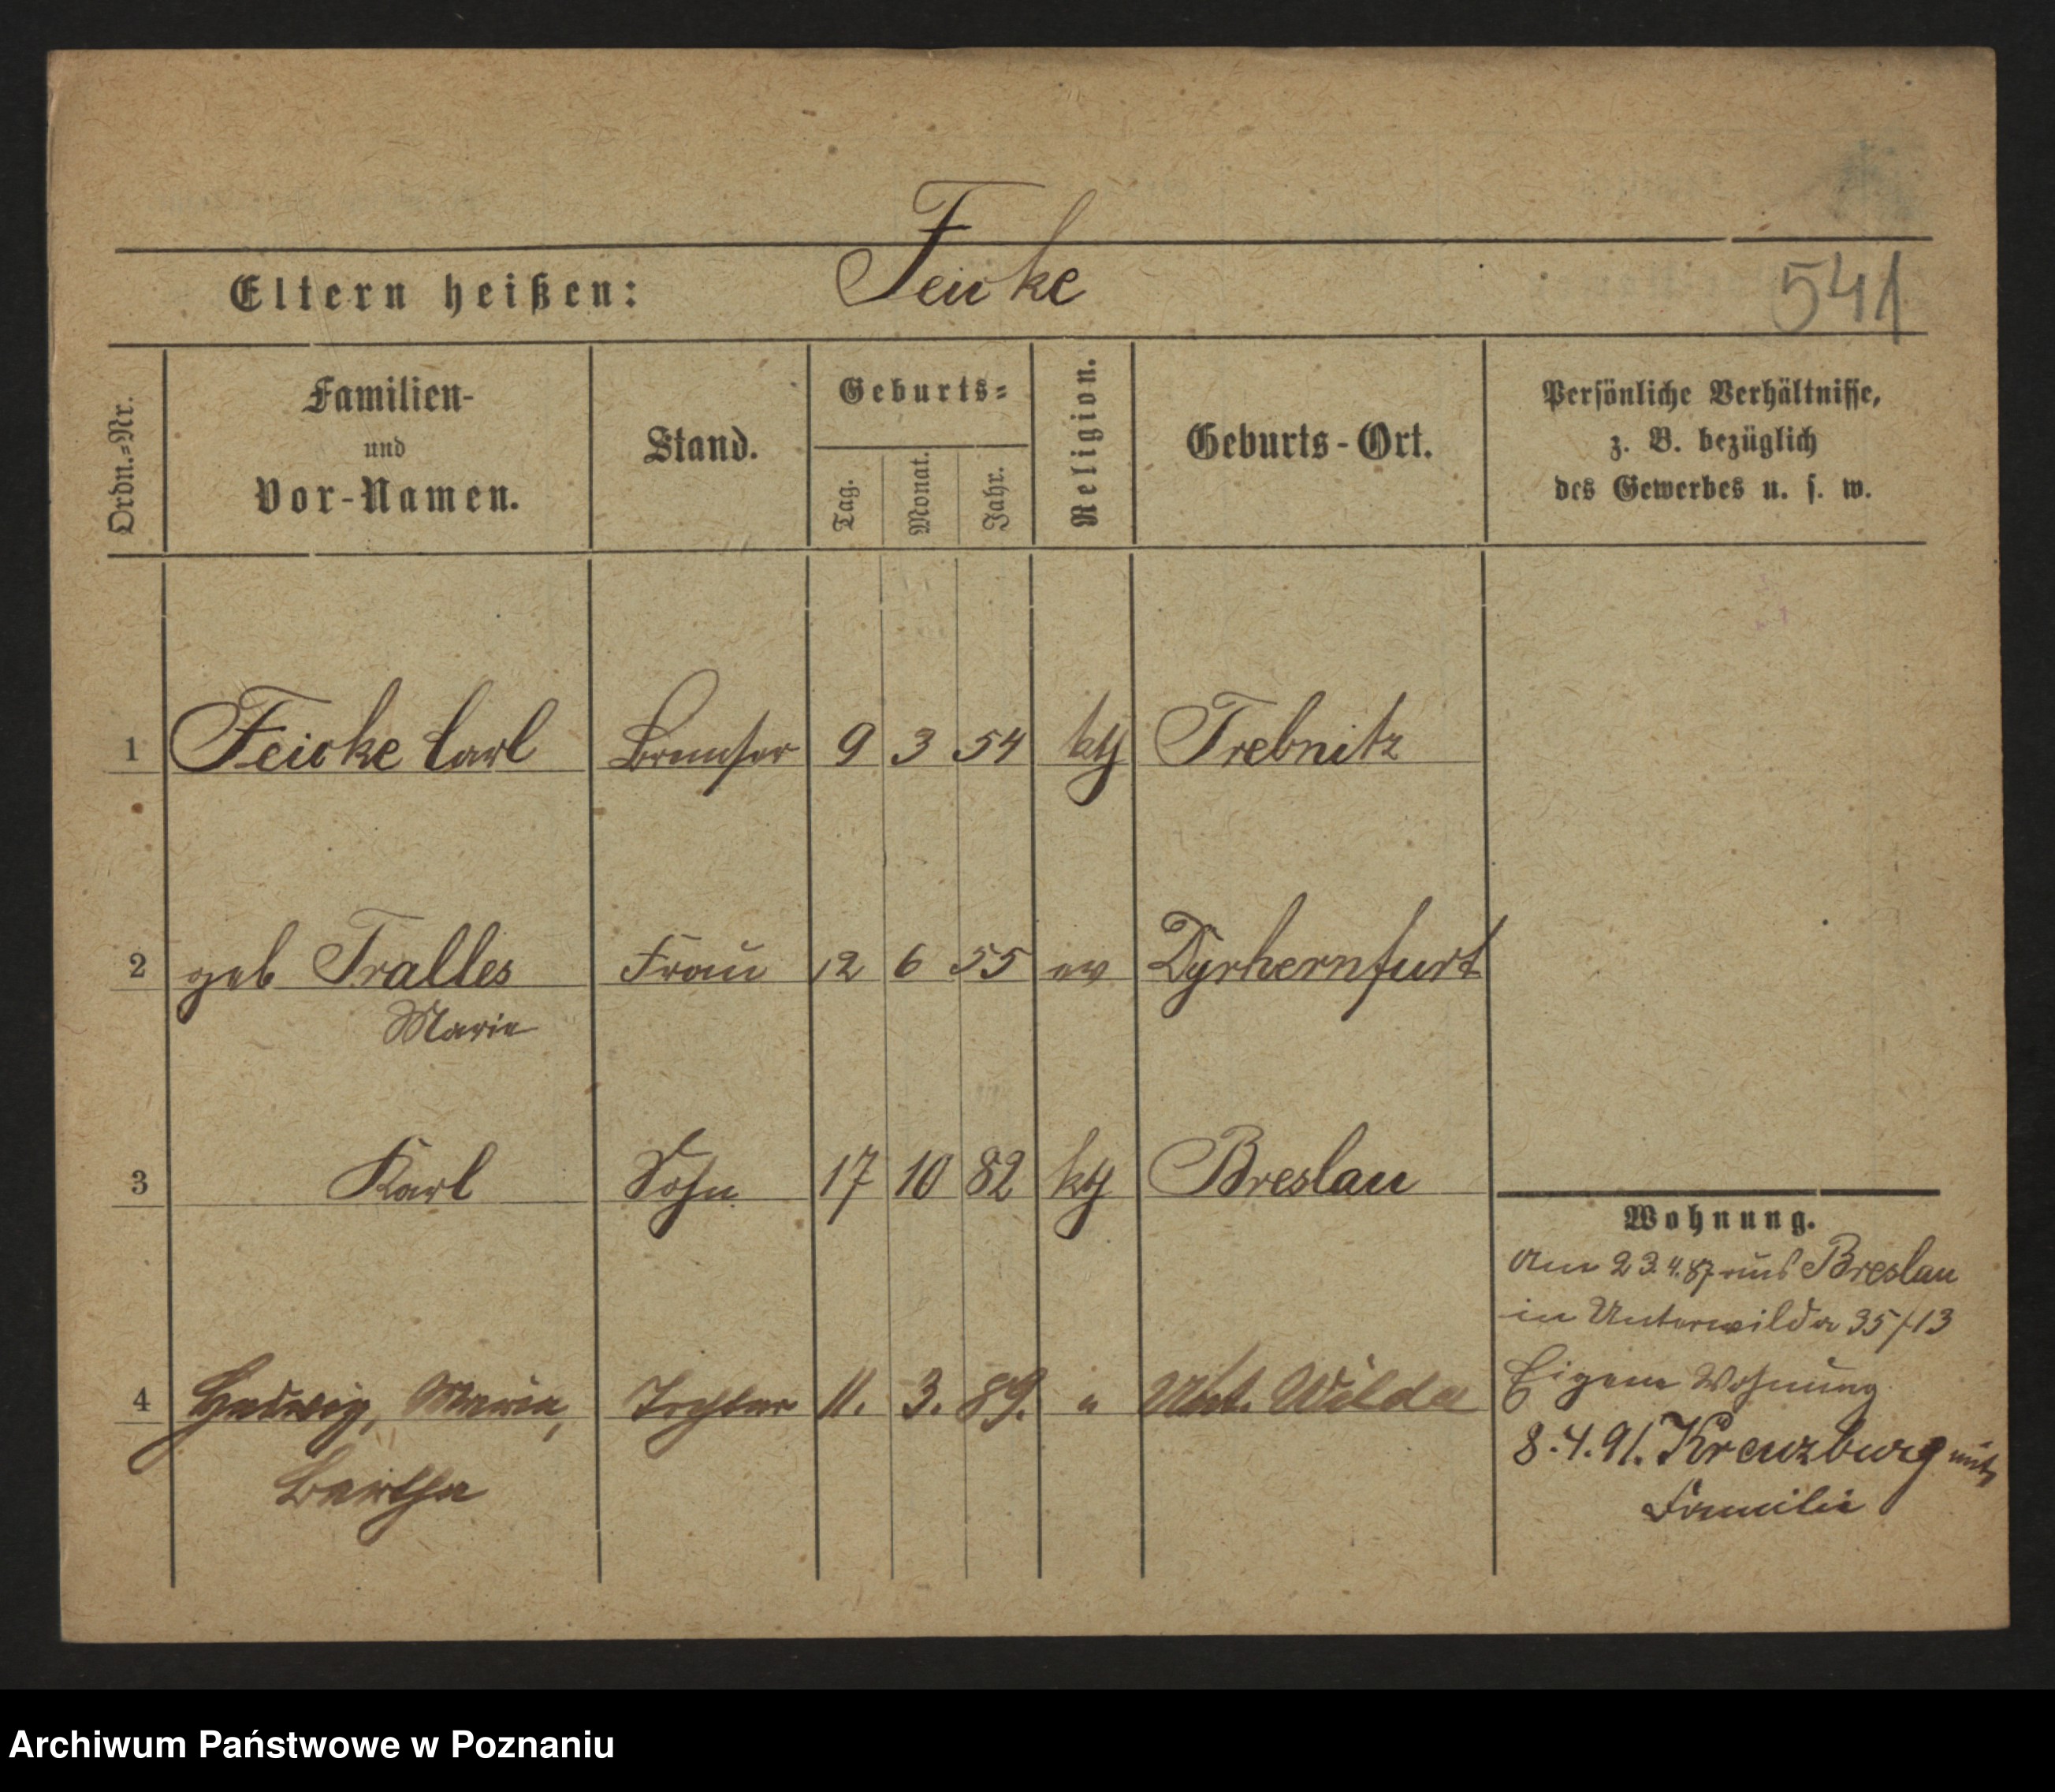 Feicke
Eltern heißen:
541
Ordn.=Nr.
Familien-
und
Vor-Namen.
Stand.
Geburts=
Tag.
Monat.
Jahr.
Religion.
Geburts-Ort.
Persönliche Verhältnisse,
z. B. bezüglich
des Gewerbes u. s. w.
1 Feicke Carl Bremser 9 3 54 kth Trebnitz
2 geb Tralles Frau 12 6 55 ev Dyrhernfurt
Marie
3 Karl Sohn 17 10 82 kth Breslau
Wohnung.
Am 23.4.87 aus Breslau
in Unterwilda 35/13
Eigene Wohnung
4 Hedwig, Maria, Tochter 11. 3. 89. " Unt. Wilda
8.4.91. Kreuzburg mit
Bertha
Familie
Archiwum Państwowe w Poznaniu